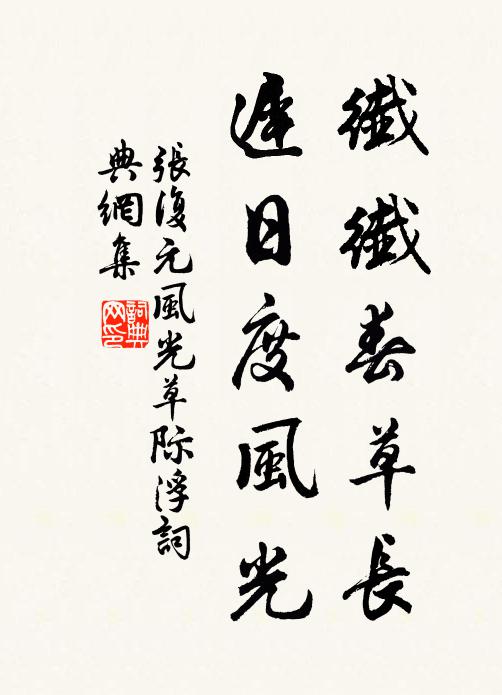 纖纖春草長
遲日度風光
張復元風光草際浮詞
典網集
詞典網印